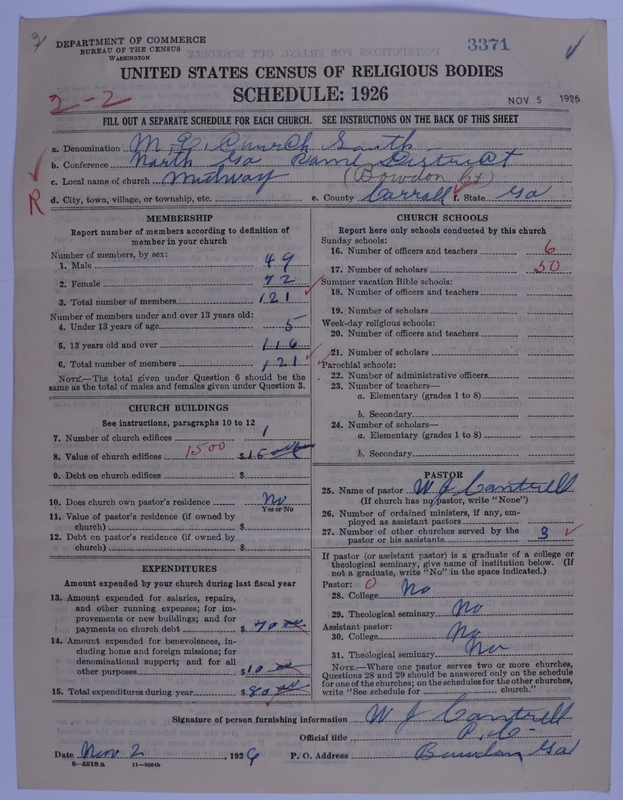 3
DEPARTMENT OF COMMERCE
BUREAU OF THE CENSUS
WASHINGTON
3371
UNITED STATES CENSUS OF RELIGIOUS BODIES
SCHEDULE: 1926
NOV 5 1926
2-2
FILL OUT A SEPARATE SCHEDULE FOR EACH CHURCH. SEE INSTRUCTIONS ON THE BACK OF THIS SHEET
a. Denomination M. E. Church South
b. Conference North Ga Rome District
c. Local name of church Midway (Bowdon Ct)
R
d. City, town, village, or township, etc. e. County Carroll f. State Ga
MEMBERSHIP
Report number of members according to definition of
member in your church
Number of members, by sex:
1. Male 49
2. Female 72
3. Total number of members 121
Number of members under and over 13 years old:
4. Under 13 years of age 5
5. 13 years old and over 116
6. Total number of members 121
NOTE.—The total given under Question 6 should be the
same as the total of males and females given under Question 3.
CHURCH BUILDINGS
See instructions, paragraphs 10 to 12
7. Number of church edifices 1
8. Value of church edifices 1500 $
9. Debt on church edifices $
10. Does church own pastor's residence No
Yes or No
11. Value of pastor's residence (if owned by
church) $
12. Debt on pastor's residence (if owned by
church) $
EXPENDITURES
Amount expended by your church during last fiscal year
13. Amount expended for salaries, repairs,
and other running expenses; for im-
provements or new buildings; and for
payments on church debt $ 70 00
14. Amount expended for benevolences, in-
cluding home and foreign missions; for
denominational support; and for all
other purposes $ 10 00
15. Total expenditures during year $ 80 00
CHURCH SCHOOLS
Report here only schools conducted by this church
Sunday schools:
16. Number of officers and teachers 6
17. Number of scholars 50
Summer vacation Bible schools:
18. Number of officers and teachers
19. Number of scholars
Week-day religious schools:
20. Number of officers and teachers
21. Number of scholars
Parochial schools:
22. Number of administrative officers
23. Number of teachers—
a. Elementary (grades 1 to 8)
b. Secondary
24. Number of scholars—
a. Elementary (grades 1 to 8)
b. Secondary
PASTOR
25. Name of pastor W J Cantrell
(If church has no pastor, write "None")
26. Number of ordained ministers, if any, em-
ployed as assistant pastors
27. Number of other churches served by the
pastor or his assistants 3
If pastor (or assistant pastor) is a graduate of a college or
theological seminary, give name of institution below. (If
not a graduate, write "No" in the space indicated.)
Pastor: 0
28. College No
29. Theological seminary No
Assistant pastor:
30. College No
31. Theological seminary No
NOTE.—Where one pastor serves two or more churches,
Questions 28 and 29 should be answered only on the schedule
for one of the churches; on the schedules for the other churches,
write "See schedule for church."
Signature of person furnishing information W J Cantrell
Official title P. C.
Date Nov 2, 1926 P. O. Address Bowdon Ga
8-5518 a 11-9054b